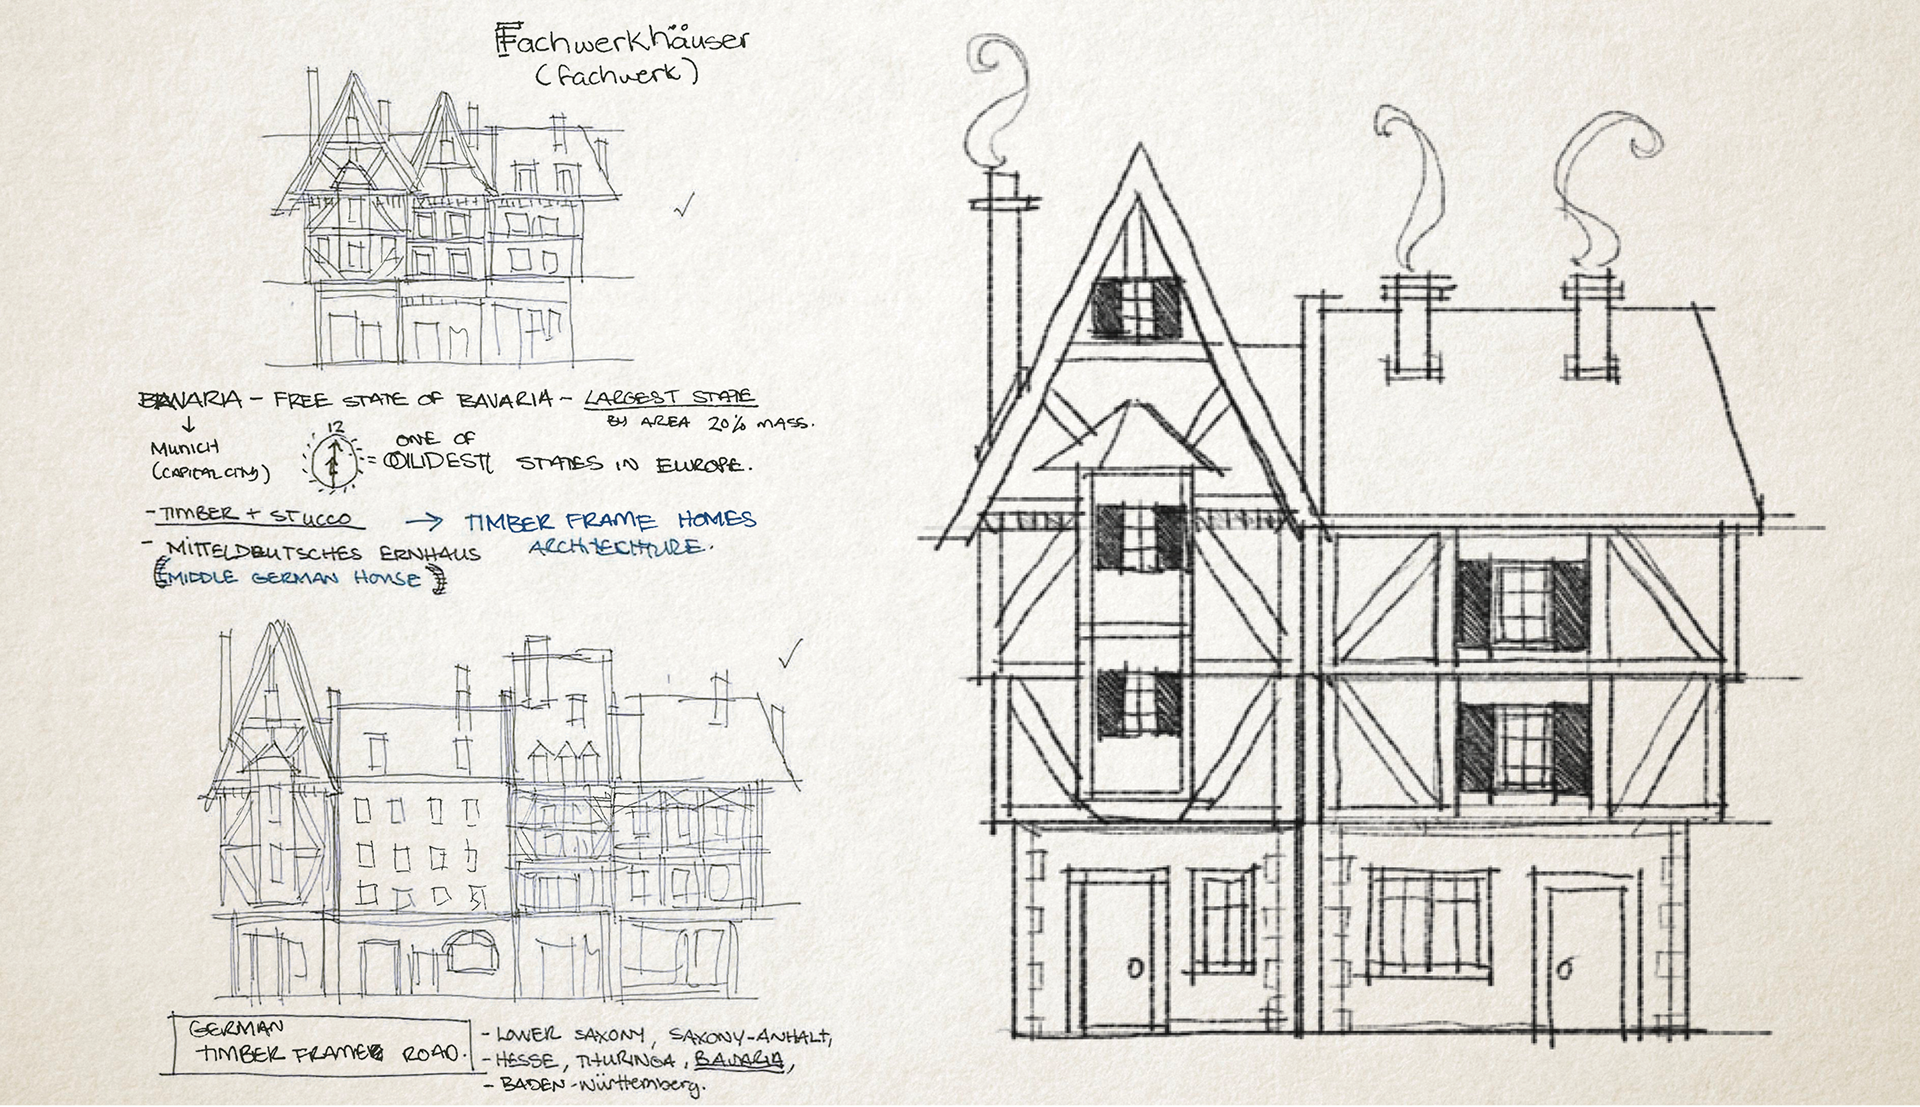 Fachwerkhäuser
(fachwerk)
BAVARIA - FREE STATE OF BAVARIA - LARGEST STATE
BY AREA 20% MASS.
↓
MUNICH
(CAPITAL CITY)
12
= ONE OF
OLDEST STATES IN EUROPE.
- TIMBER + STUCCO → TIMBER FRAME HOMES
ARCHITECTURE.
- MITTELDEUTSCHES ERNHAUS
(MIDDLE GERMAN HOUSE)
GERMAN
TIMBER FRAME ROAD.
- LOWER SAXONY, SAXONY-ANHALT,
- HESSE, THURINGA, BAVARIA,
- BADEN-Württemberg.